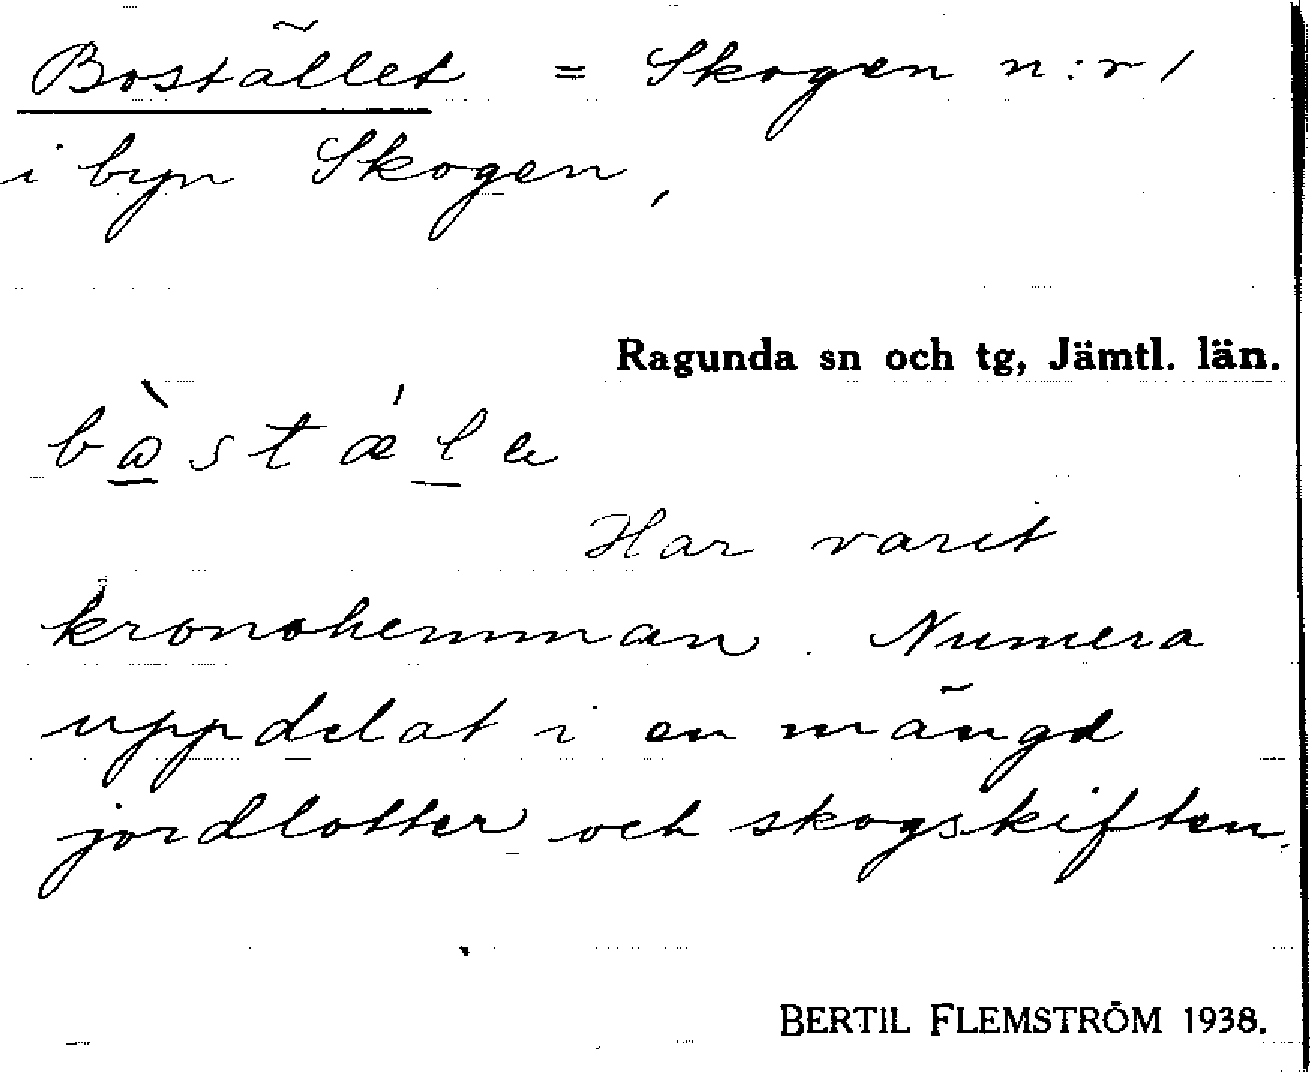 Bostället = Skogen n:r 1
i byn Skogen,
Ragunda sn och tg, Jämtl. län.
Har varit
kronohemman. Numera
uppdelat i en mängd
jordlotter och skogskiften.
BERTIL FLEMSTRÖM 1938.